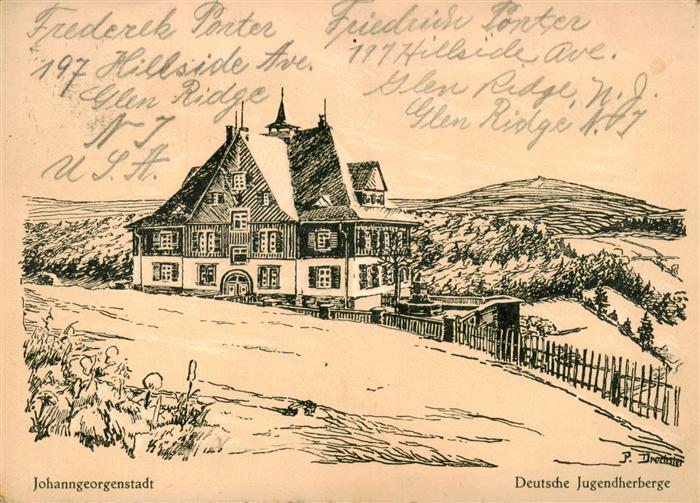 Frederek Porter
197 Hillside Ave.
Glen Ridge
N J
U S A
Friedrich Porter
197 Hillside Ave.
Glen Ridge, N. J.
Glen Ridge, N. J
P. Drechsler
Johanngeorgenstadt
Deutsche Jugendherberge